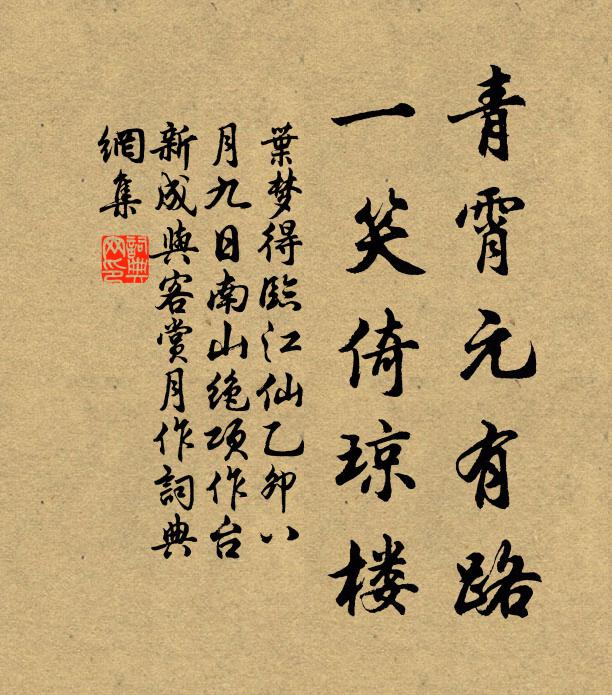 青霄元有路
一笑倚琼楼
葉梦得臨江仙乙卯八
月九日南山绝项作台
新成與客賞月作詞典
網集
詞典网印